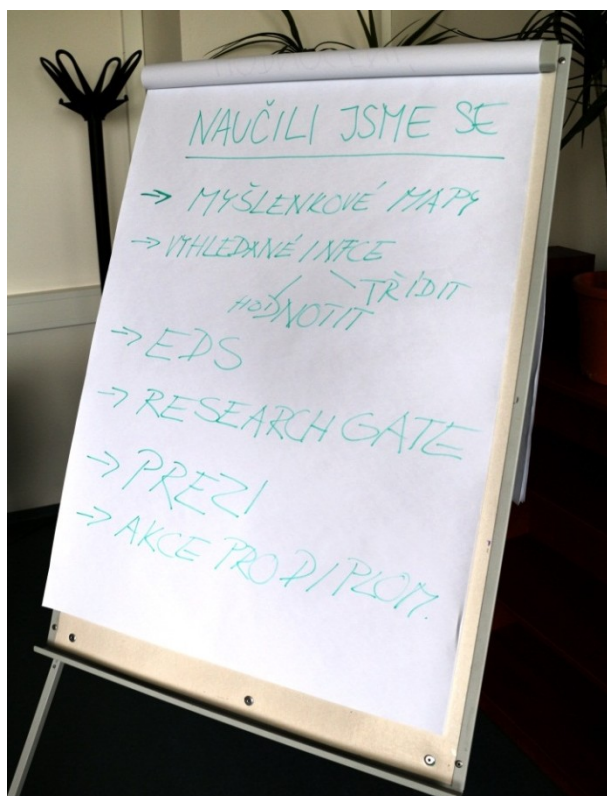 NAUČILI JSME SE
→ MYŠLENKOVÉ MAPY
→ VYHLEDANÉ INFCE
HODNOTIT
TŘÍDIT
→ EDS
→ RESEARCH GATE
→ PREZI
→ AKCE PRO DIPLOM.